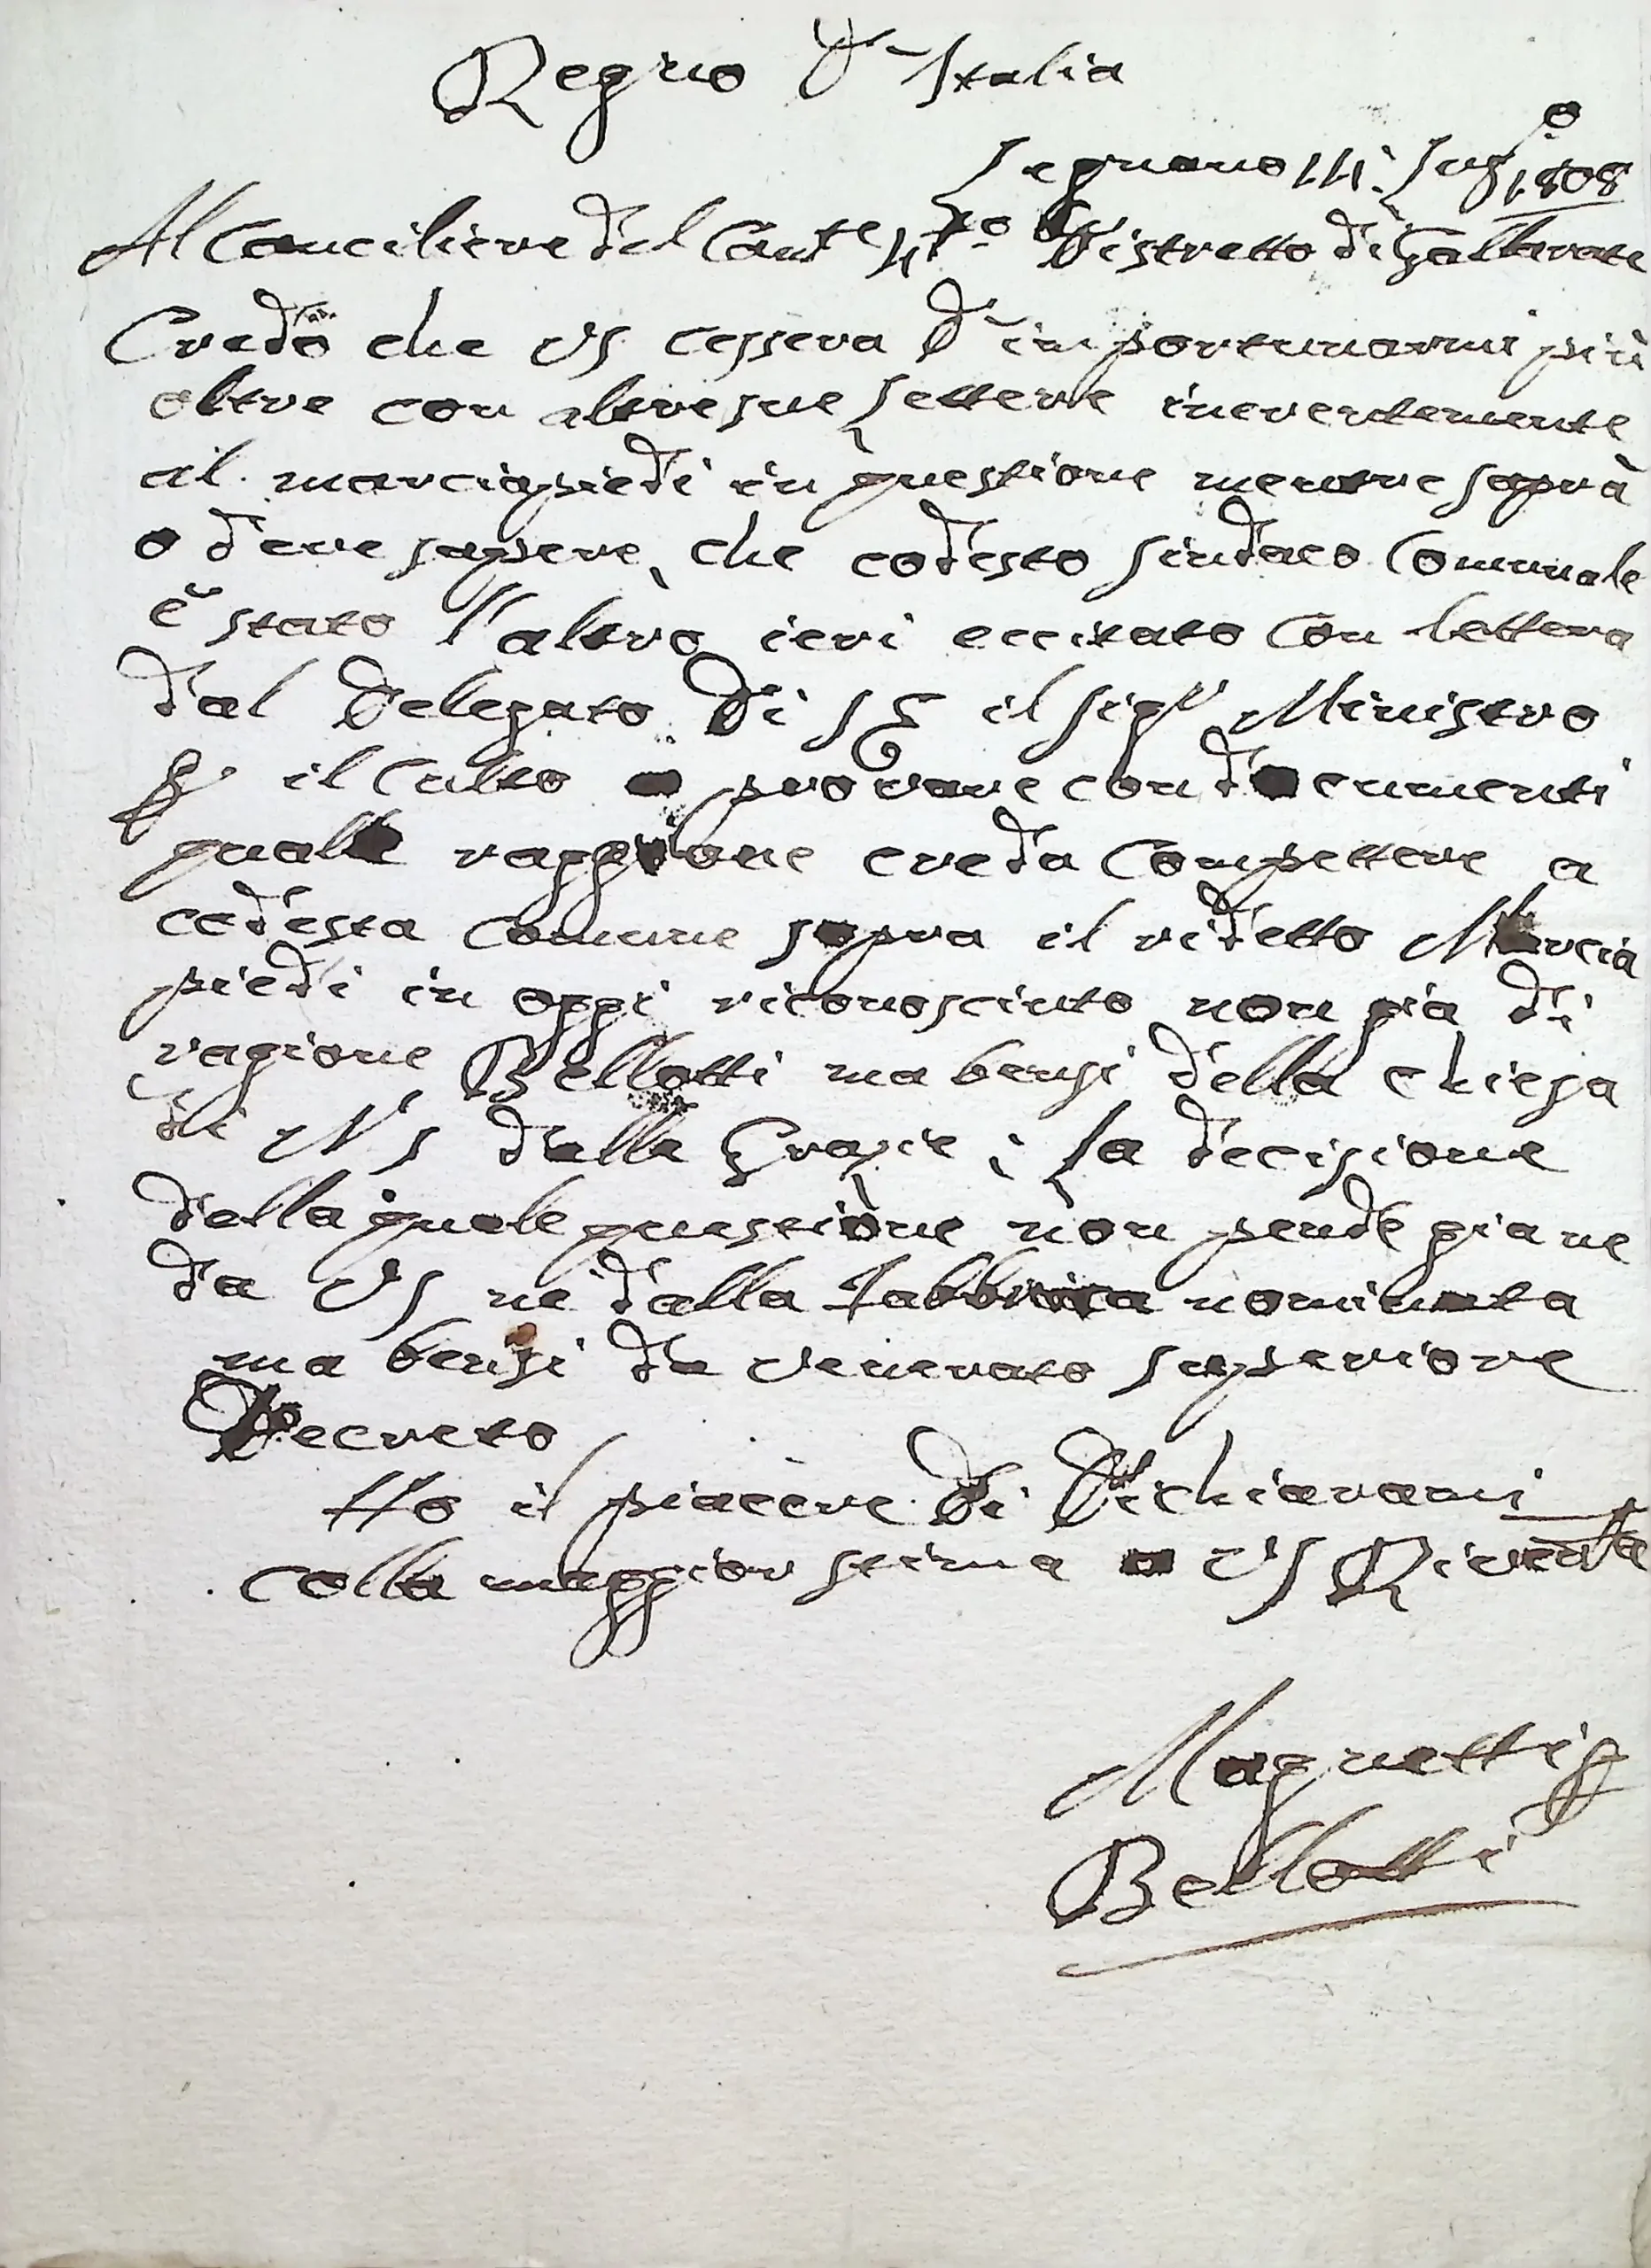 Regno d'Italia
Legnano 14. Lug.o 1808
Al Cancilire del Cant.e 4.to Distretto di Gallarate
Credo che VS cessera d'importunarmi più
oltre con altre sue Lettere inerentemente
al marciapiedi in questione mentre saprà
o deve sapere, che codesto sindaco Comunale
è stato l'altro ieri eccitato con lettera
dal Delegato di SE il sigr Ministro
per il Culto a provare con documenti
qualle raggione creda Compettere a
codesta Comune sopra il ridetto Marcia
piedi in oggi riconosciuto non gia di
ragione Bellotti ma bensi della chiesa
di NS delle Grazie; La decisione
della quale questione non pende gia ne
da VS nè dalla Fabbrica nominata
ma bensi da venerato superiore
Decreto
Ho il piacere di Dichiararmi
colla maggior stima a VS Riverita
Magnetti
Bellotti